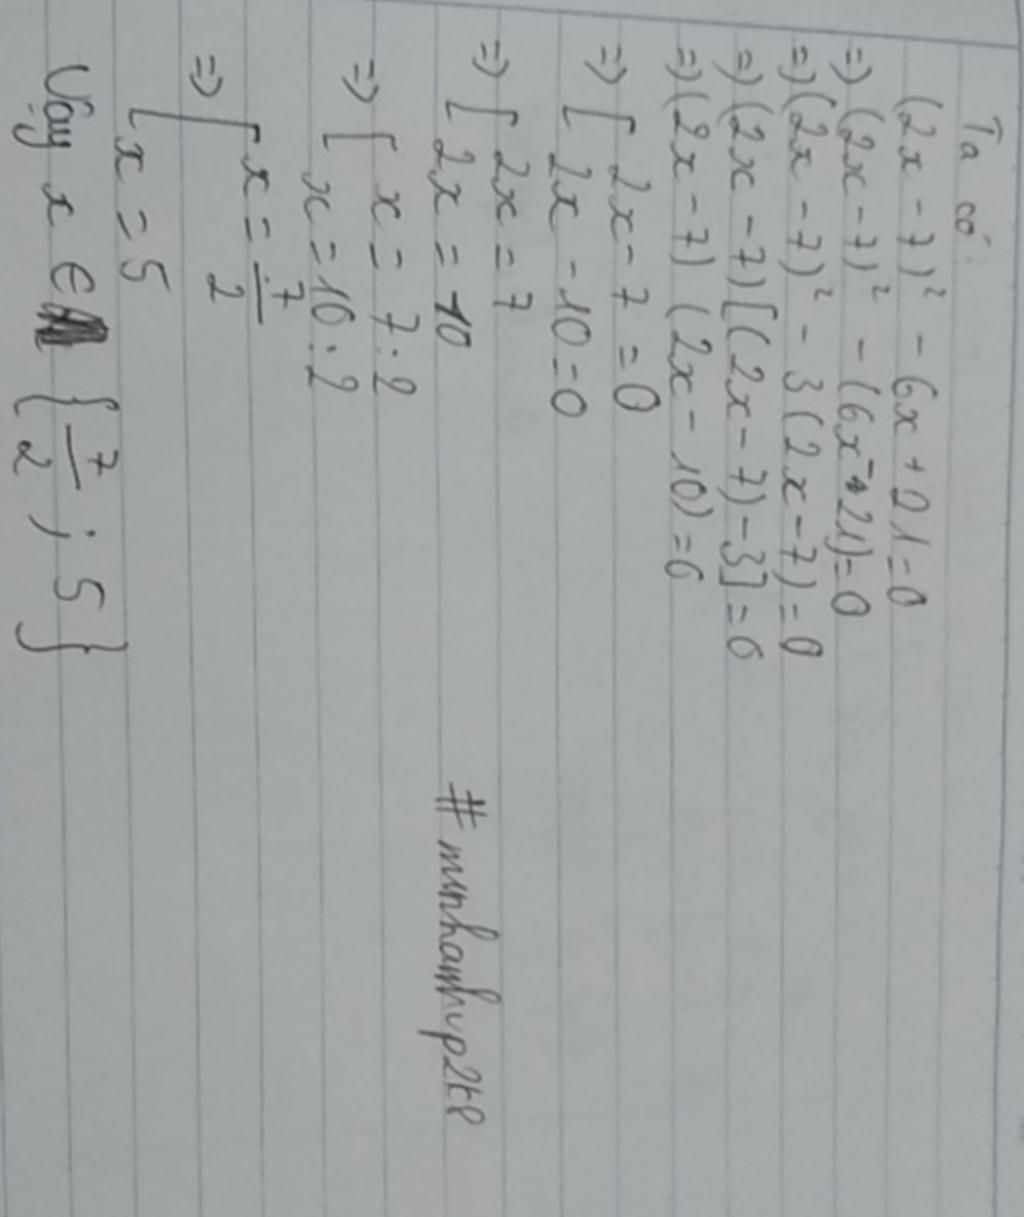 Ta có:
(2x - 7)² - 6x + 21 = 0
=> (2x - 7)² - (6x - 21) = 0
=> (2x - 7)² - 3(2x - 7) = 0
=> (2x - 7)[(2x - 7) - 3] = 0
=> (2x - 7) (2x - 10) = 0
=> [ 2x - 7 = 0
2x - 10 = 0
=> [ 2x = 7
2x = 10
=> [ x = 7 : 2
x = 10 : 2
=> [ x = 7/2
x = 5
Vậy x ∈ { 7/2 ; 5 }